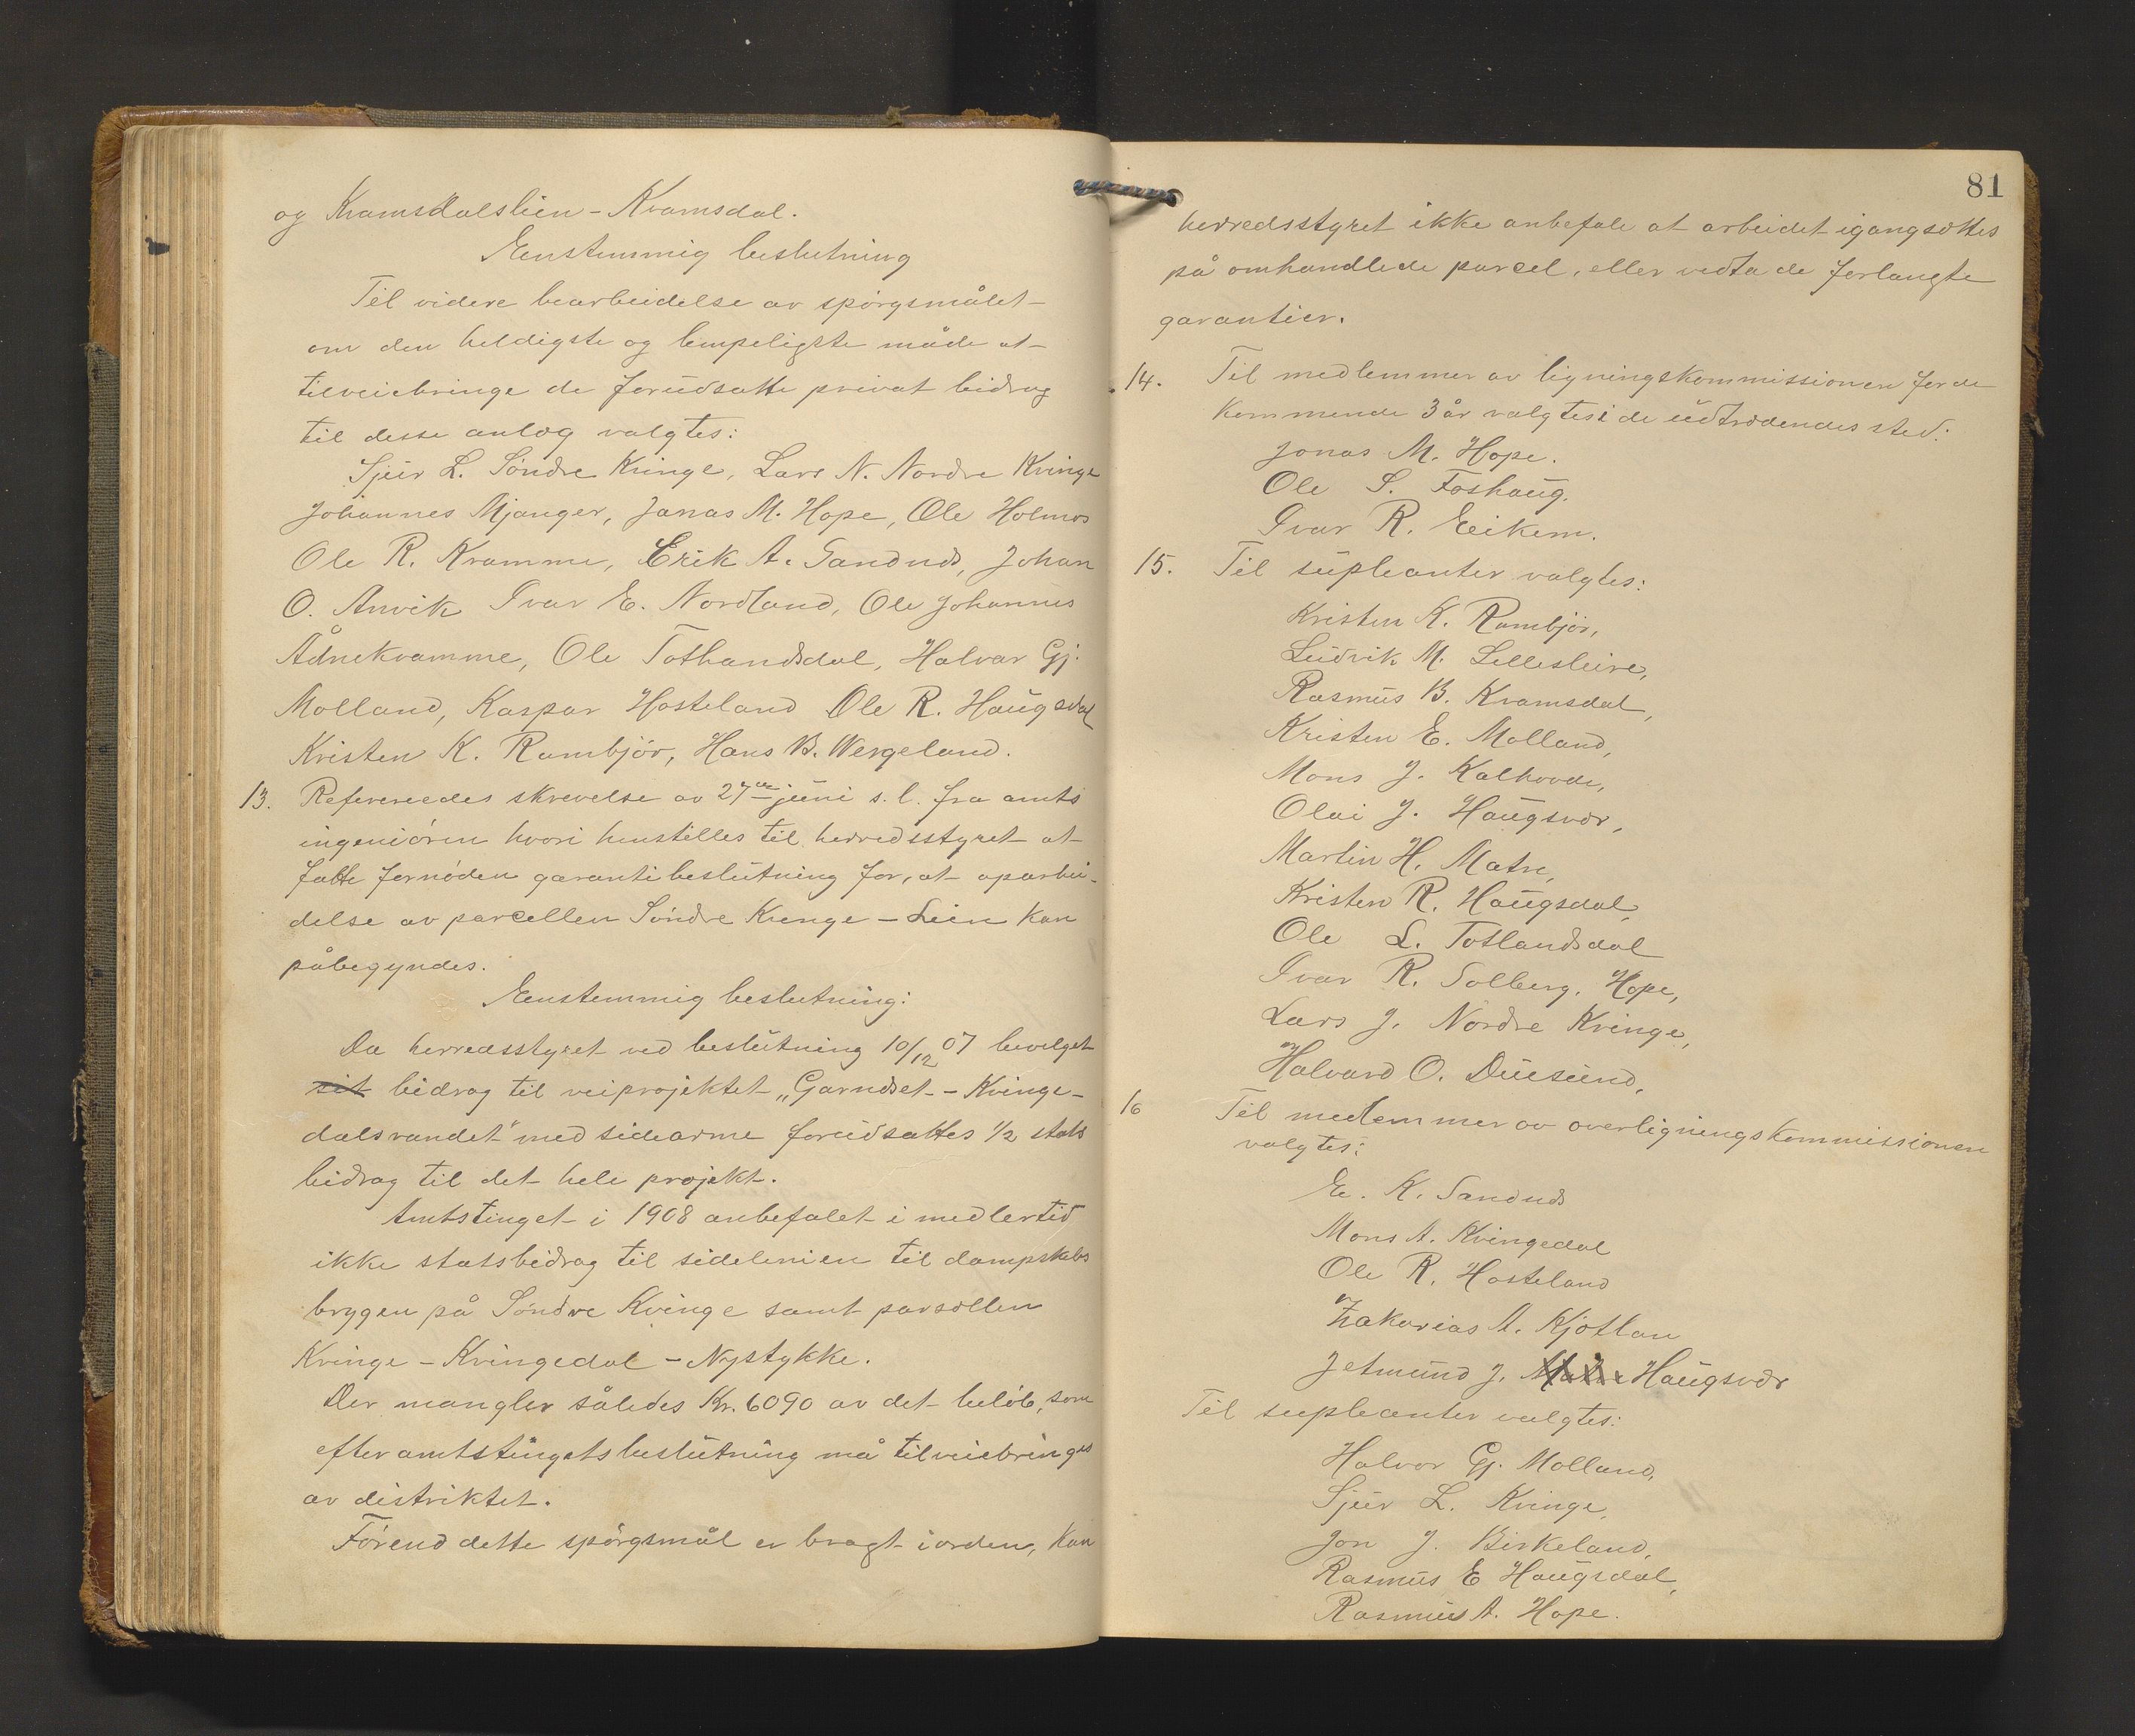 og Kvamsdalslien - Kvamsdal.
Eenstemmig beslutning
Til videre bearbeidelse av spørgsmålet
om den heldigste og lempeligste måde at
tilveiebringe de forudsatte privat bidrag
til desse anlæg valgtes:
Sjur L. Søndre Kvinge, Lars N. Nordre Kvinge
Johannes Mjanger, Jonas M. Hope, Ole Holmås
Ole R. Kvamme, Erik A. Sandnds, Johan
O. Anvik Ivar E. Nordland, Ole Johannes
Ådnekvamme, Ole Totlandsdal, Halvar Gj.
Molland, Kaspar Hosteland Ole R. Haugsdal
Kristen K. Rambjør, Hans B. Wergeland.
13. Refereredes skrevelse av 27de juni s. l. fra amts
ingeniøren hvori henstilles til herredsstyret at
fatte fornøden garantibeslutning for, at oparbei-
delse av parcellen Søndre Kvinge - Lien kan
påbegyndes.
Eenstemmig beslutning:
Da herredsstyret ved beslutning 10/12 07 bevilget
sit bidrag til veiprojektet „Garndset - Kvinge-
dalsvandet" med sidearme forudsattes 1/2 stats
bidrag til det hele projekt.
Amtstinget i 1908 anbefalet imedlertid
ikke statsbidrag til sidelinien til dampskibs
bryggen på Søndre Kvinge samt parsellen
Kvinge - Kvingedal - Nystykke.
Der mangler således Kr. 6090 av det beløb, som
efter amtstingets beslutning må tilveiebringes
av distriktet.
Førend dette spørgsmål er bragt iorden, kan
81
herredsstyret ikke anbefale at arbeidet igangsættes
på omhandlede parcel, eller vedta de forlangte
garantier.
14. Til medlemmer av ligningskommissionen for de
kommende 3 år valgtes i de udtrædendes sted:
Jonas M. Hope.
Ole S. Foshaug.
Ivar R. Eikem.
15. Til supleanter valgtes:
Kristen K. Rambjør,
Ludvik M. Lillesleire,
Rasmus B. Kvamsdal,
Kristen E. Molland,
Mons J. Kalhovde,
Olai J. Haugsvær,
Martin H. Matre,
Kristen R. Haugsdal,
Ole L. Totlandsdal
Ivar R. Solberg, Hope,
Lars J. Nordre Kvinge,
Halvard O. Duesund,
16 Til medlemmer av overligningskommissionen
valgtes:
E. K. Sandnds
Mons A. Kvingedal
Ole R. Hosteland
Zakarias A. Kjøtlan
Jetmund J. Matre Haugsvær
Til supleanter valgtes:
Halvor Gj. Molland,
Sjur L. Kvinge,
Jon J. Birkeland,
Rasmus E Haugsdal,
Rasmus A. Hope.